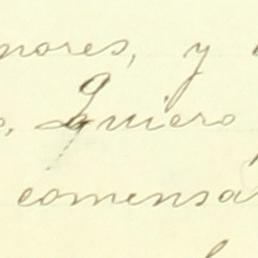 nores, y
Quiero
comensa